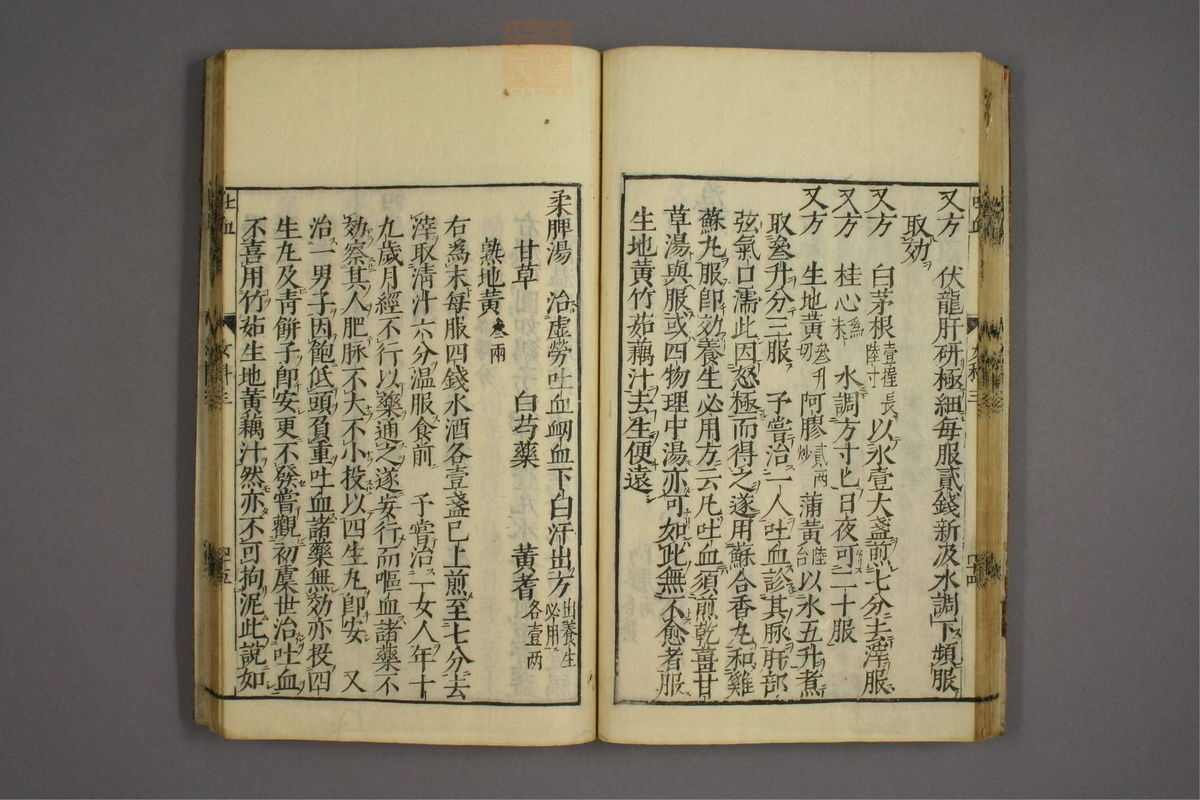 又方　伏龍肝研極細每服貳錢新汲水調下頻服
取効
又方　白茅根壹握長陸寸以水壹大盞煎七分去滓服
又方　桂心爲末　水調方寸匕日夜可二十服
又方　生地黄叄升切　阿膠貳两炒　蒲黄陸合以水五升煮
取叄升分三服　予嘗治一人吐血診其脉肝部
弦氣口濡此因怒極而得之遂用蘇合香丸和雞
蘇丸服即効養生必用方云凡吐血須煎乾薑甘
草湯與服或四物理中湯亦可如此無不愈者服
生地黄竹茹藕汁去生便遠
柔脾湯　治虚勞吐血衂血下白汗出方出養生必用
甘草　白芍藥　黄耆各壹两
熟地黄叄兩
右為末每服四錢水酒各壹盞已上煎至七分去
滓取清汁六分温服食前　予嘗治一女人年十
九歲月經不行以藥通之遂安行而嘔血諸藥不
効察其人肥脉不大不小投以四生丸即安　又
治一男子因飽低頭負重吐血諸藥無効亦投四
生丸及青餅子即安更不發嘗觀初虞世治吐血
不喜用竹茹生地黄藕汁然亦不可拘泥此說如
吐血
女科三
四十五